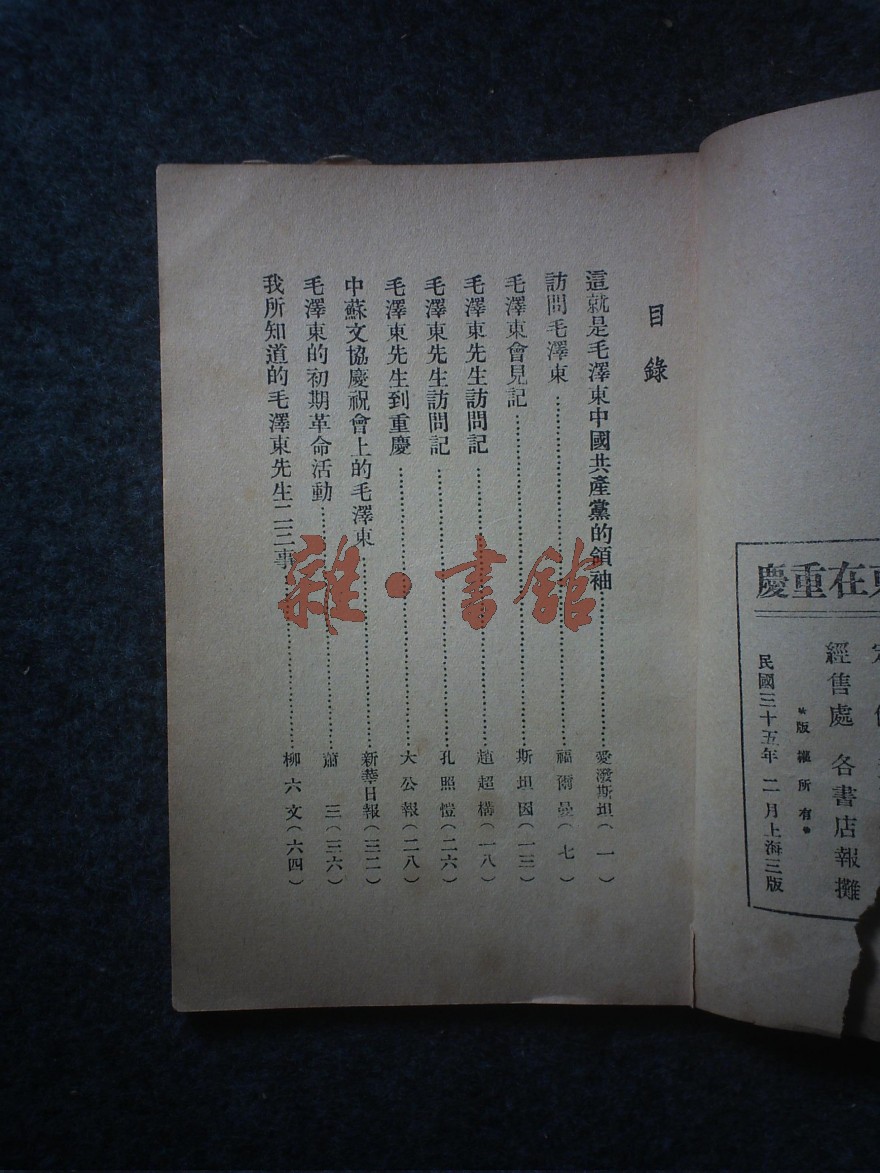 慶重在東
經售處 各書店報攤
版權所有
民國三十五年二月上海三版
目錄
這就是毛澤東中國共產黨的領袖……愛潑斯坦(一)
訪問毛澤東……福爾曼(七)
毛澤東會見記……斯坦因(一三)
毛澤東先生訪問記……趙超構(一八)
毛澤東先生訪問記……孔照愷(二六)
毛澤東先生到重慶……大公報(二八)
中蘇文協慶祝會上的毛澤東……新華日報(三二)
毛澤東的初期革命活動……蕭三(三六)
我所知道的毛澤東先生二三事……柳六文(六四)
雜·書館